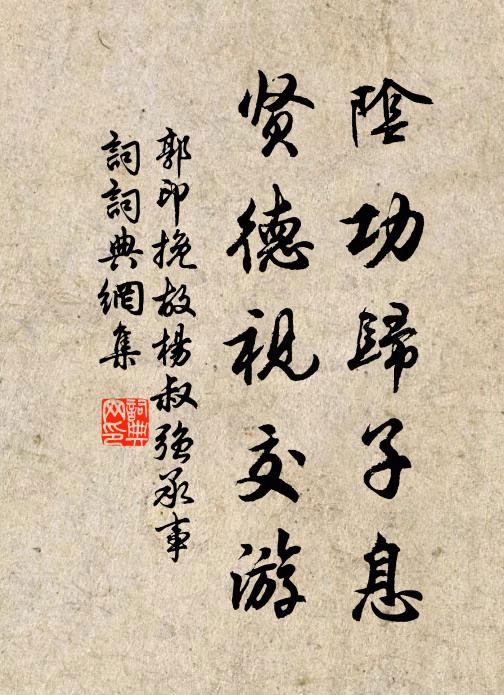 陰功歸子息
贤德視交游
郭印挽故楊叔强承事
詞詞典網集
詞典网印